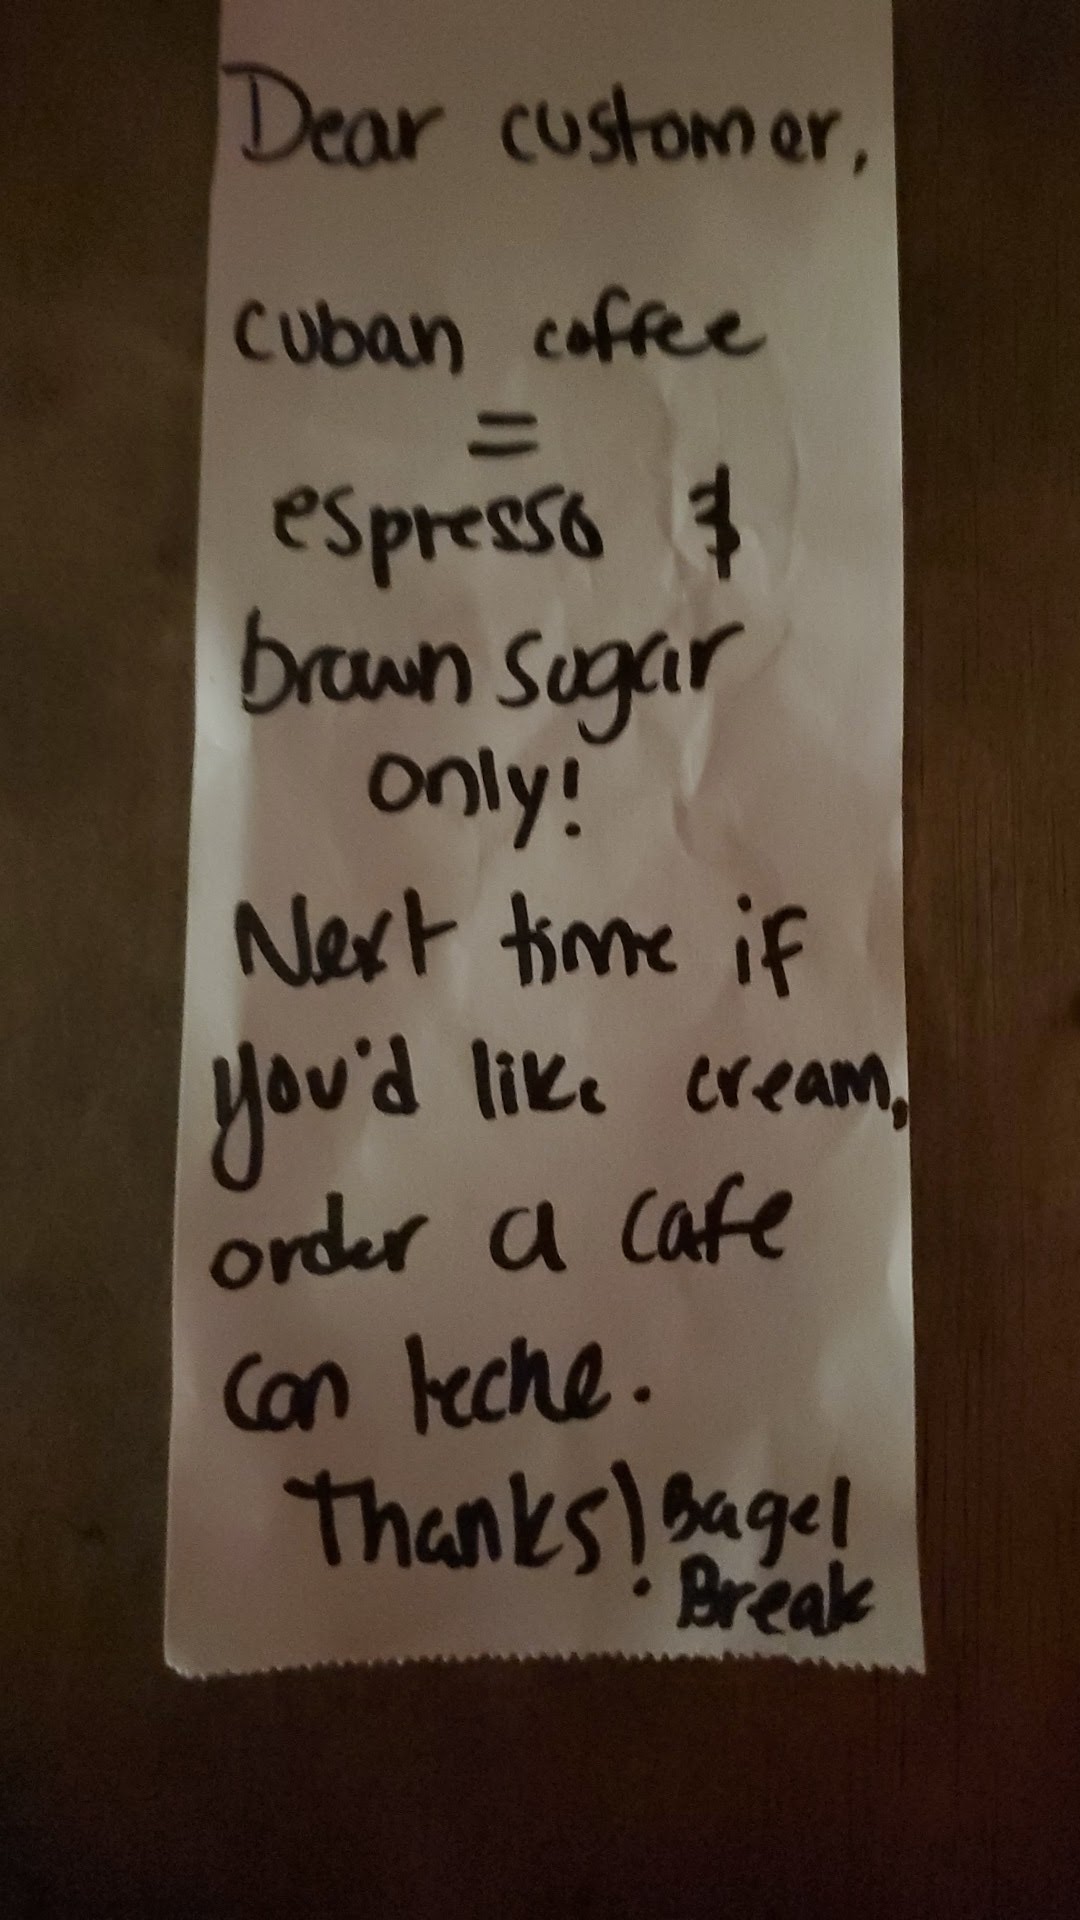 Dear customer,
cuban coffee
=
espresso &
brown sugar
only!
Next time if
you'd like cream,
order a cafe
con leche.
Thanks! Bagel
Break